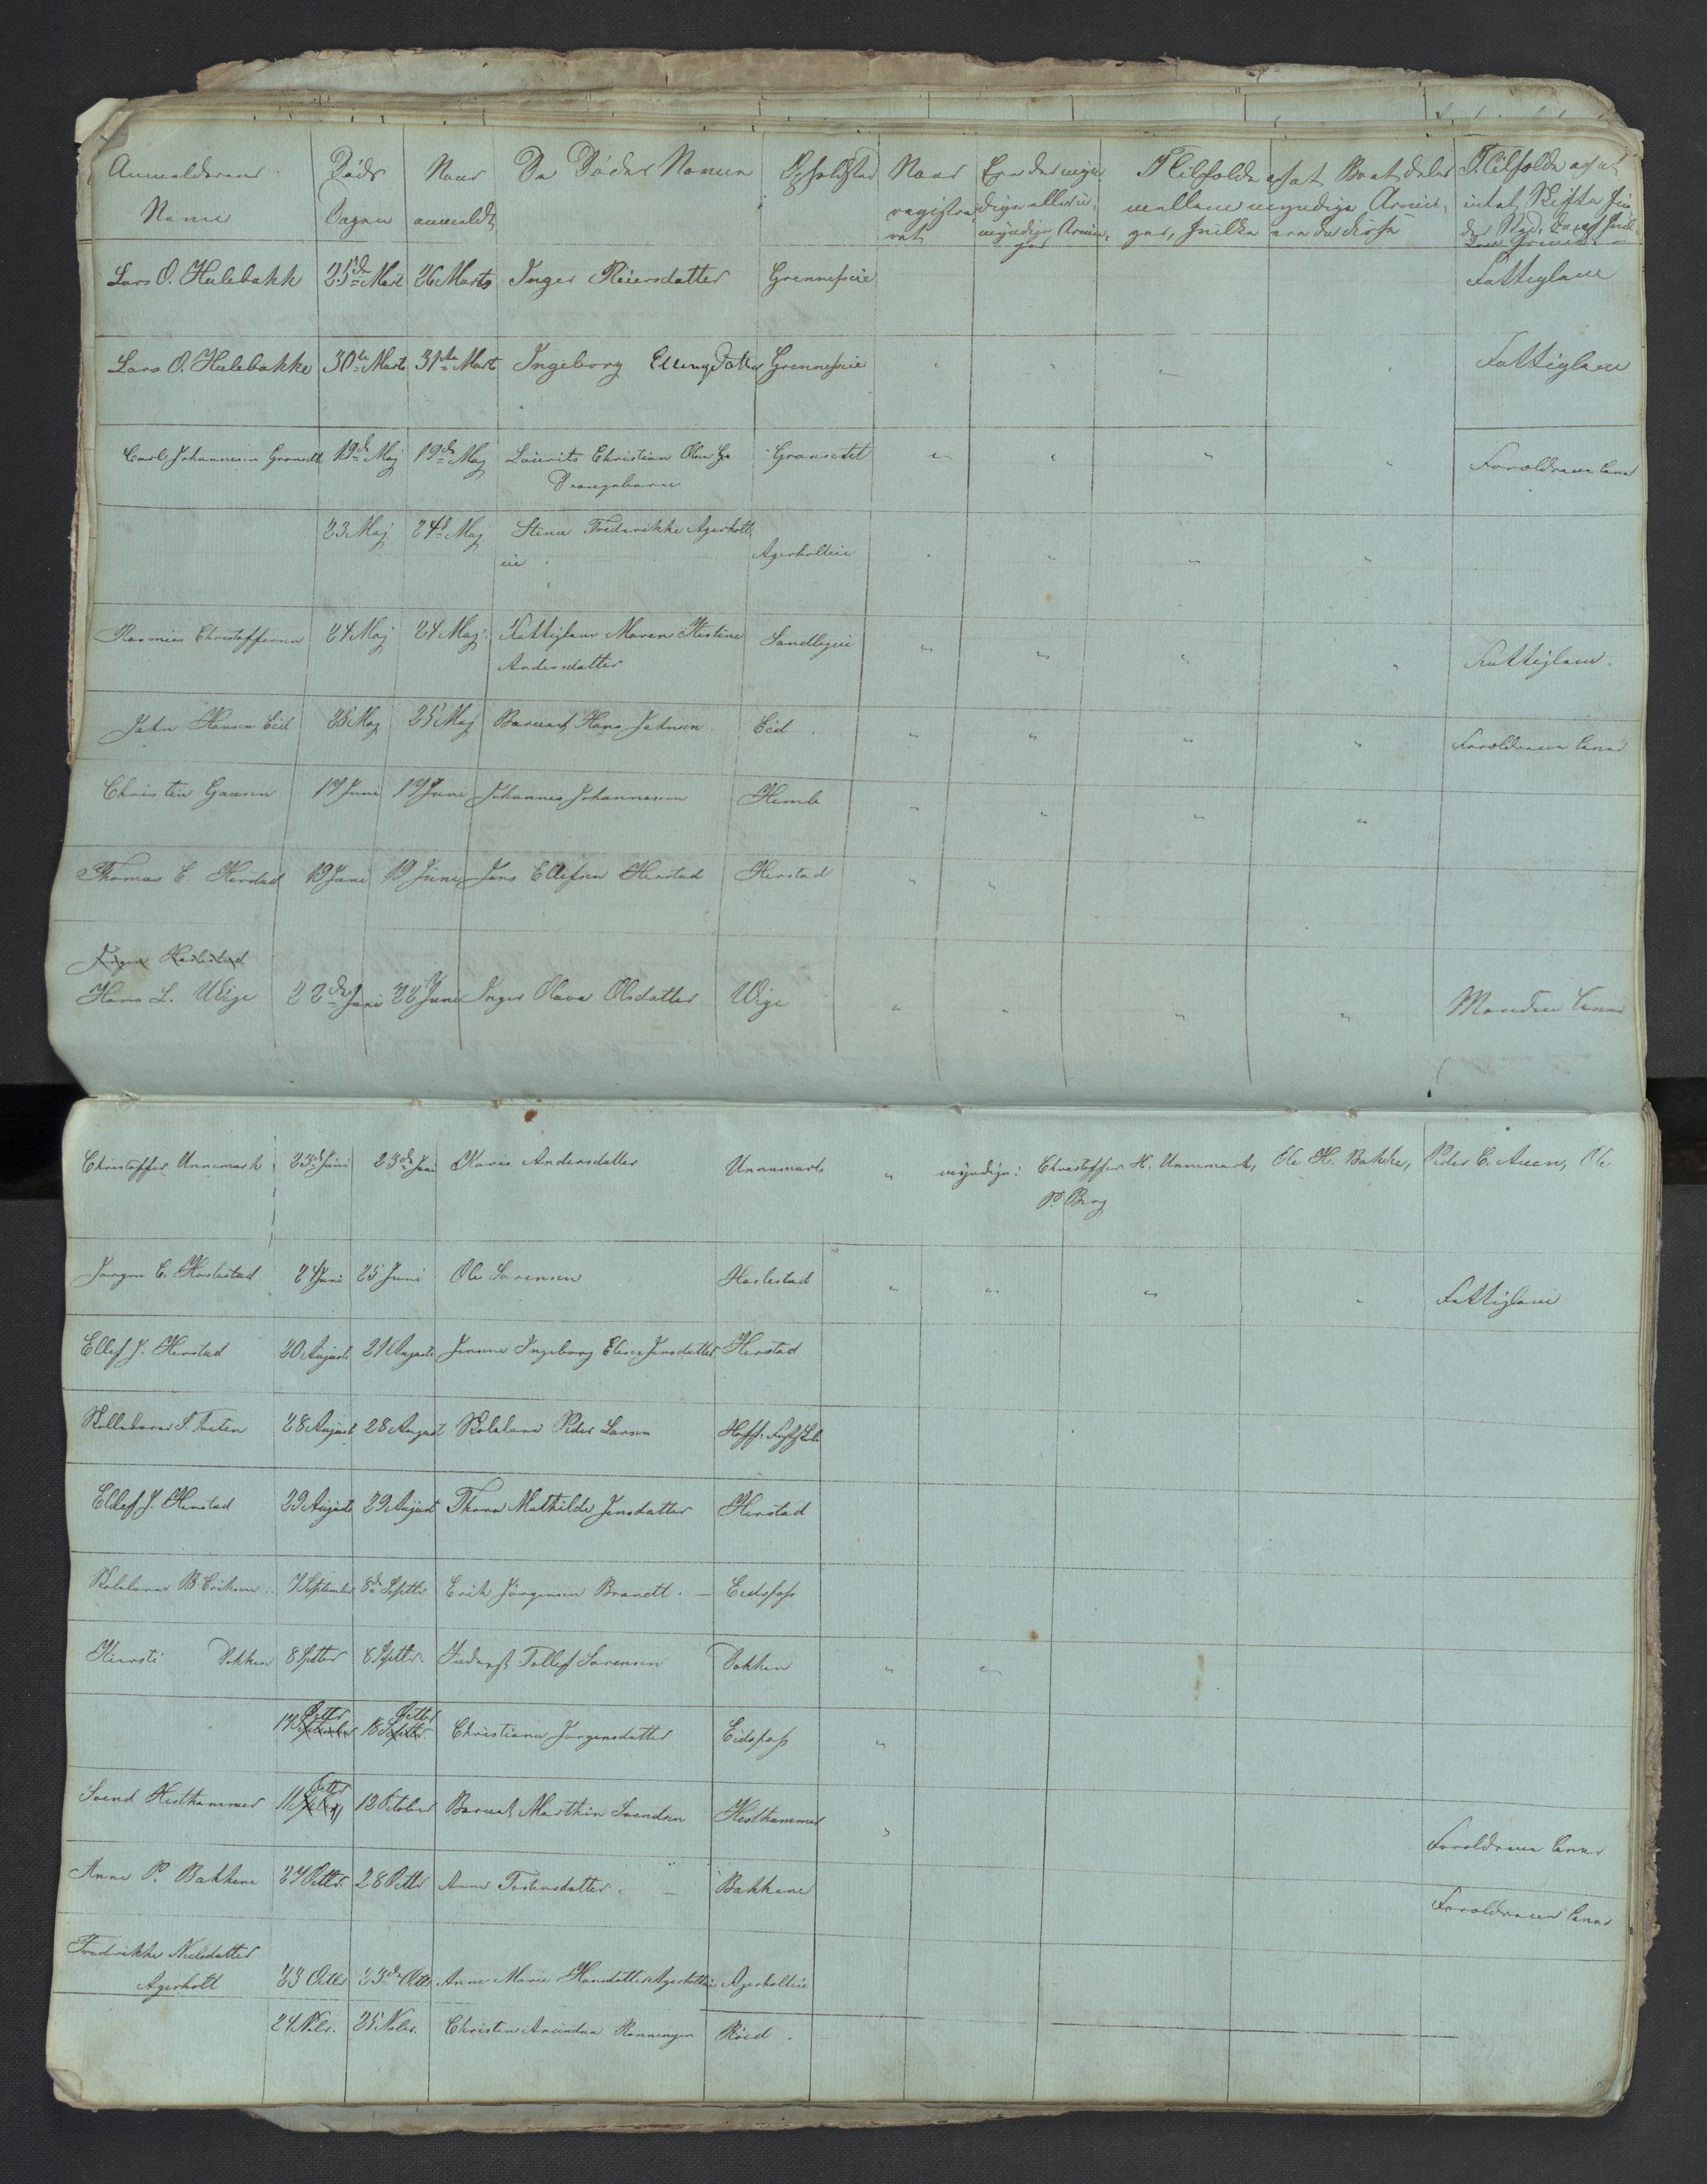 Anmelderens Navne | Døds Dagen | Naar anmeldt | De Dødes Navne | Opholdsted | Naar registre= ret | Ere der myn= dige eller u= myndige Arvin= ger | Tilfælde af at Boet deles mellem myndige Arvin= ger, hvilke ere da disse | Tilfælde af at intet Skifte fin= der Sted,
Lars O. Hulebakk | 25de Mart | 26 Marts | Inger Reiersdatter | Grenneseie | Fattiglem
Lars O. Hulebakke | 30te Marts | 31te Mart | Ingeborg Ellingsdatter | Grenneseie | " | " | " | " | Fattiglem
Carl Johannesen Gransedt | 19de Maj | 19de Maj | Lauritz Christian Olsen
Drengebarn | Gransedt | " | " | " | " | Forældrene lever
23 Maj | 24d Maj | Stine Frederikke Agerholt=
eie | Agerholteie | " | " | " | "
Rasmus Christoffersen | 24 Maj | 24 Maj | Fattiglem Maren Kistine
Andersdatter | Sandbyeie | " | " | " | " | Fattiglem.
John Hansen Eid | 25 Maj | 25 Maj | Barnet Hans Johnsen | Eid | " | " | " | " | Forældrene lever
Christen Gausen | 17 Juni | 17 Juni | Johannes Johannesen | Hemb | " | " | " | "
Thomas E. Herstad | 19 Juni | 19 Juni | Jens Ellefsen Herstad | Herstad | " | "
Jørgen Haslestad
Hans L. Wige | 22de Juni | 22d Juni | Inger Olava Olsdatter | Wige | " | " | " | " | Manden lever
Christoffer Unnemark | 23de Juni | 23de Juni | Karie Andersdatter | Unnemark | " | myndige: | Christoffer H. Unnemark, Ole H. Bakke, Peder C. Auen, Ole
P. Berg
Jørgen E. Haslestad | 24 Juni | 25 Juni | Ole Sørensen | Haslestad | " | " | " | " | Fattiglem
Ellef J. Herstad | 20 August | 21 August | Jensine Ingeborg Elise Jensdatter | Herstad
Skollærer S. Tveten | 28 August | 28 August | Skolelærer Peder Larsen | Hoff:
Ellef J. Herstad | 29 August | 29 August | Thora Mathilde Jensdatter | Herstad
Skolelærer B Eriksen | 7 September | 8de Septbr | Erik Jörgensen Brandt. — | Eidsfoss
Kiersti Dokken | 8 Septbr | 8 Septbr. | Inderst Tollef Sørensen | Dokken | " | "
17 September Octbr | 18 Septbr. Octbr | Christiane Jørgensdatter | Eidsfoss | "
Svend Hestkammer | 11 Octbr | 12 October | Barnet Marthin Svendsen | Hestkammer | " | Forældrene lever
Anne P. Bakkene | 27 Octbr | 28 Octbr | Anne Tostensdatter. — | Bakkene | Forældrene lever
Fredrikke Nielsdatter
Agerholt | 23 Octbr | 23de Octbr | Anne Marie Hansdatter Agerholteie | Agerholteie
24 Novbr. | 25 Novbr. | Christen Amundsen Rønningen | Röed.